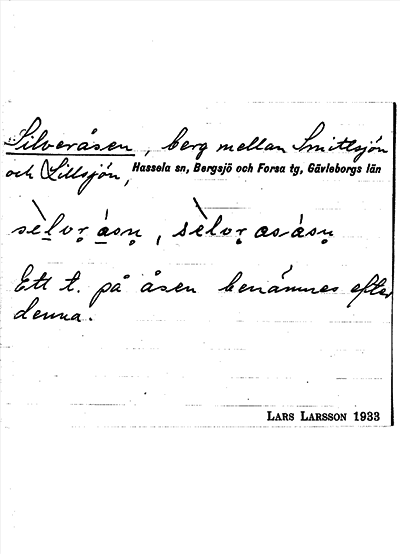 Silveråsen, berg mellan Smittsjön
och Lillsjön, Hassela sn, Bergsjö och Forsa tg, Gävleborgs län
sèlvr̥ásn̥, sèlvr̥ásn̥
Ett t. på åsen benämnes efter
denna.
LARS LARSSON 1933